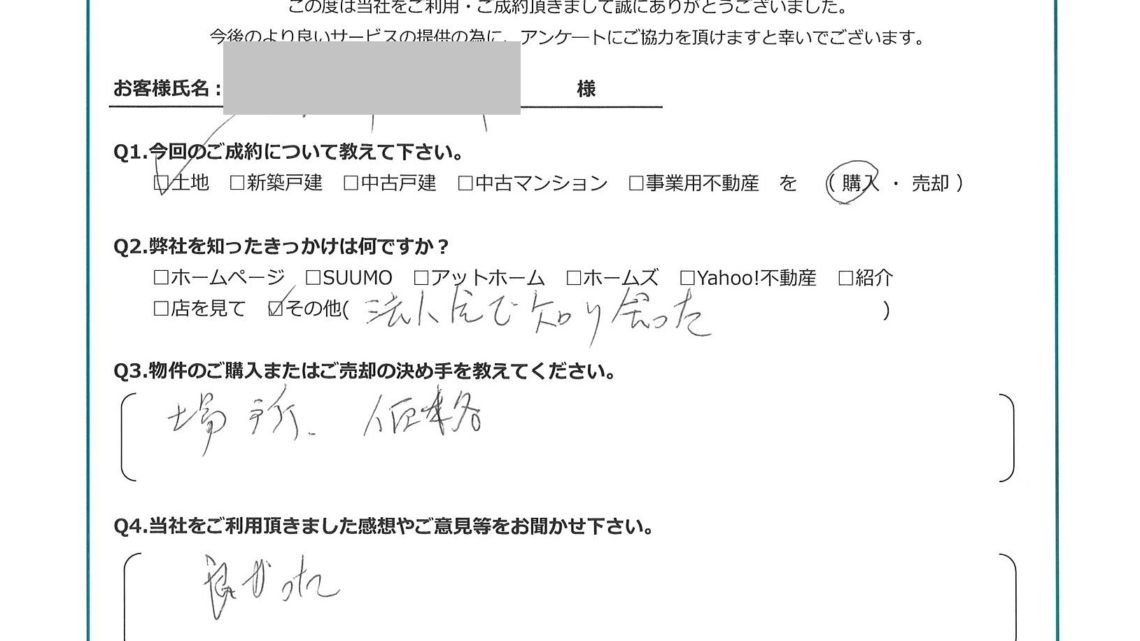 この度は当社をご利用・ご成約頂きまして誠にありがとうございました。
今後のより良いサービスの提供の為に、アンケートにご協力を頂けますと幸いでございます。
お客様氏名： 様
Q1.今回のご成約について教えて下さい。
☑土地 □新築戸建 □中古戸建 □中古マンション □事業用不動産 を （ 購入 ・ 売却 ）
Q2.弊社を知ったきっかけは何ですか？
□ホームページ □SUUMO □アットホーム □ホームズ □Yahoo!不動産 □紹介
□店を見て ☑その他( 法人会で知り合った )
Q3.物件のご購入またはご売却の決め手を教えてください。
場所、価格
Q4.当社をご利用頂きました感想やご意見等をお聞かせ下さい。
良かった